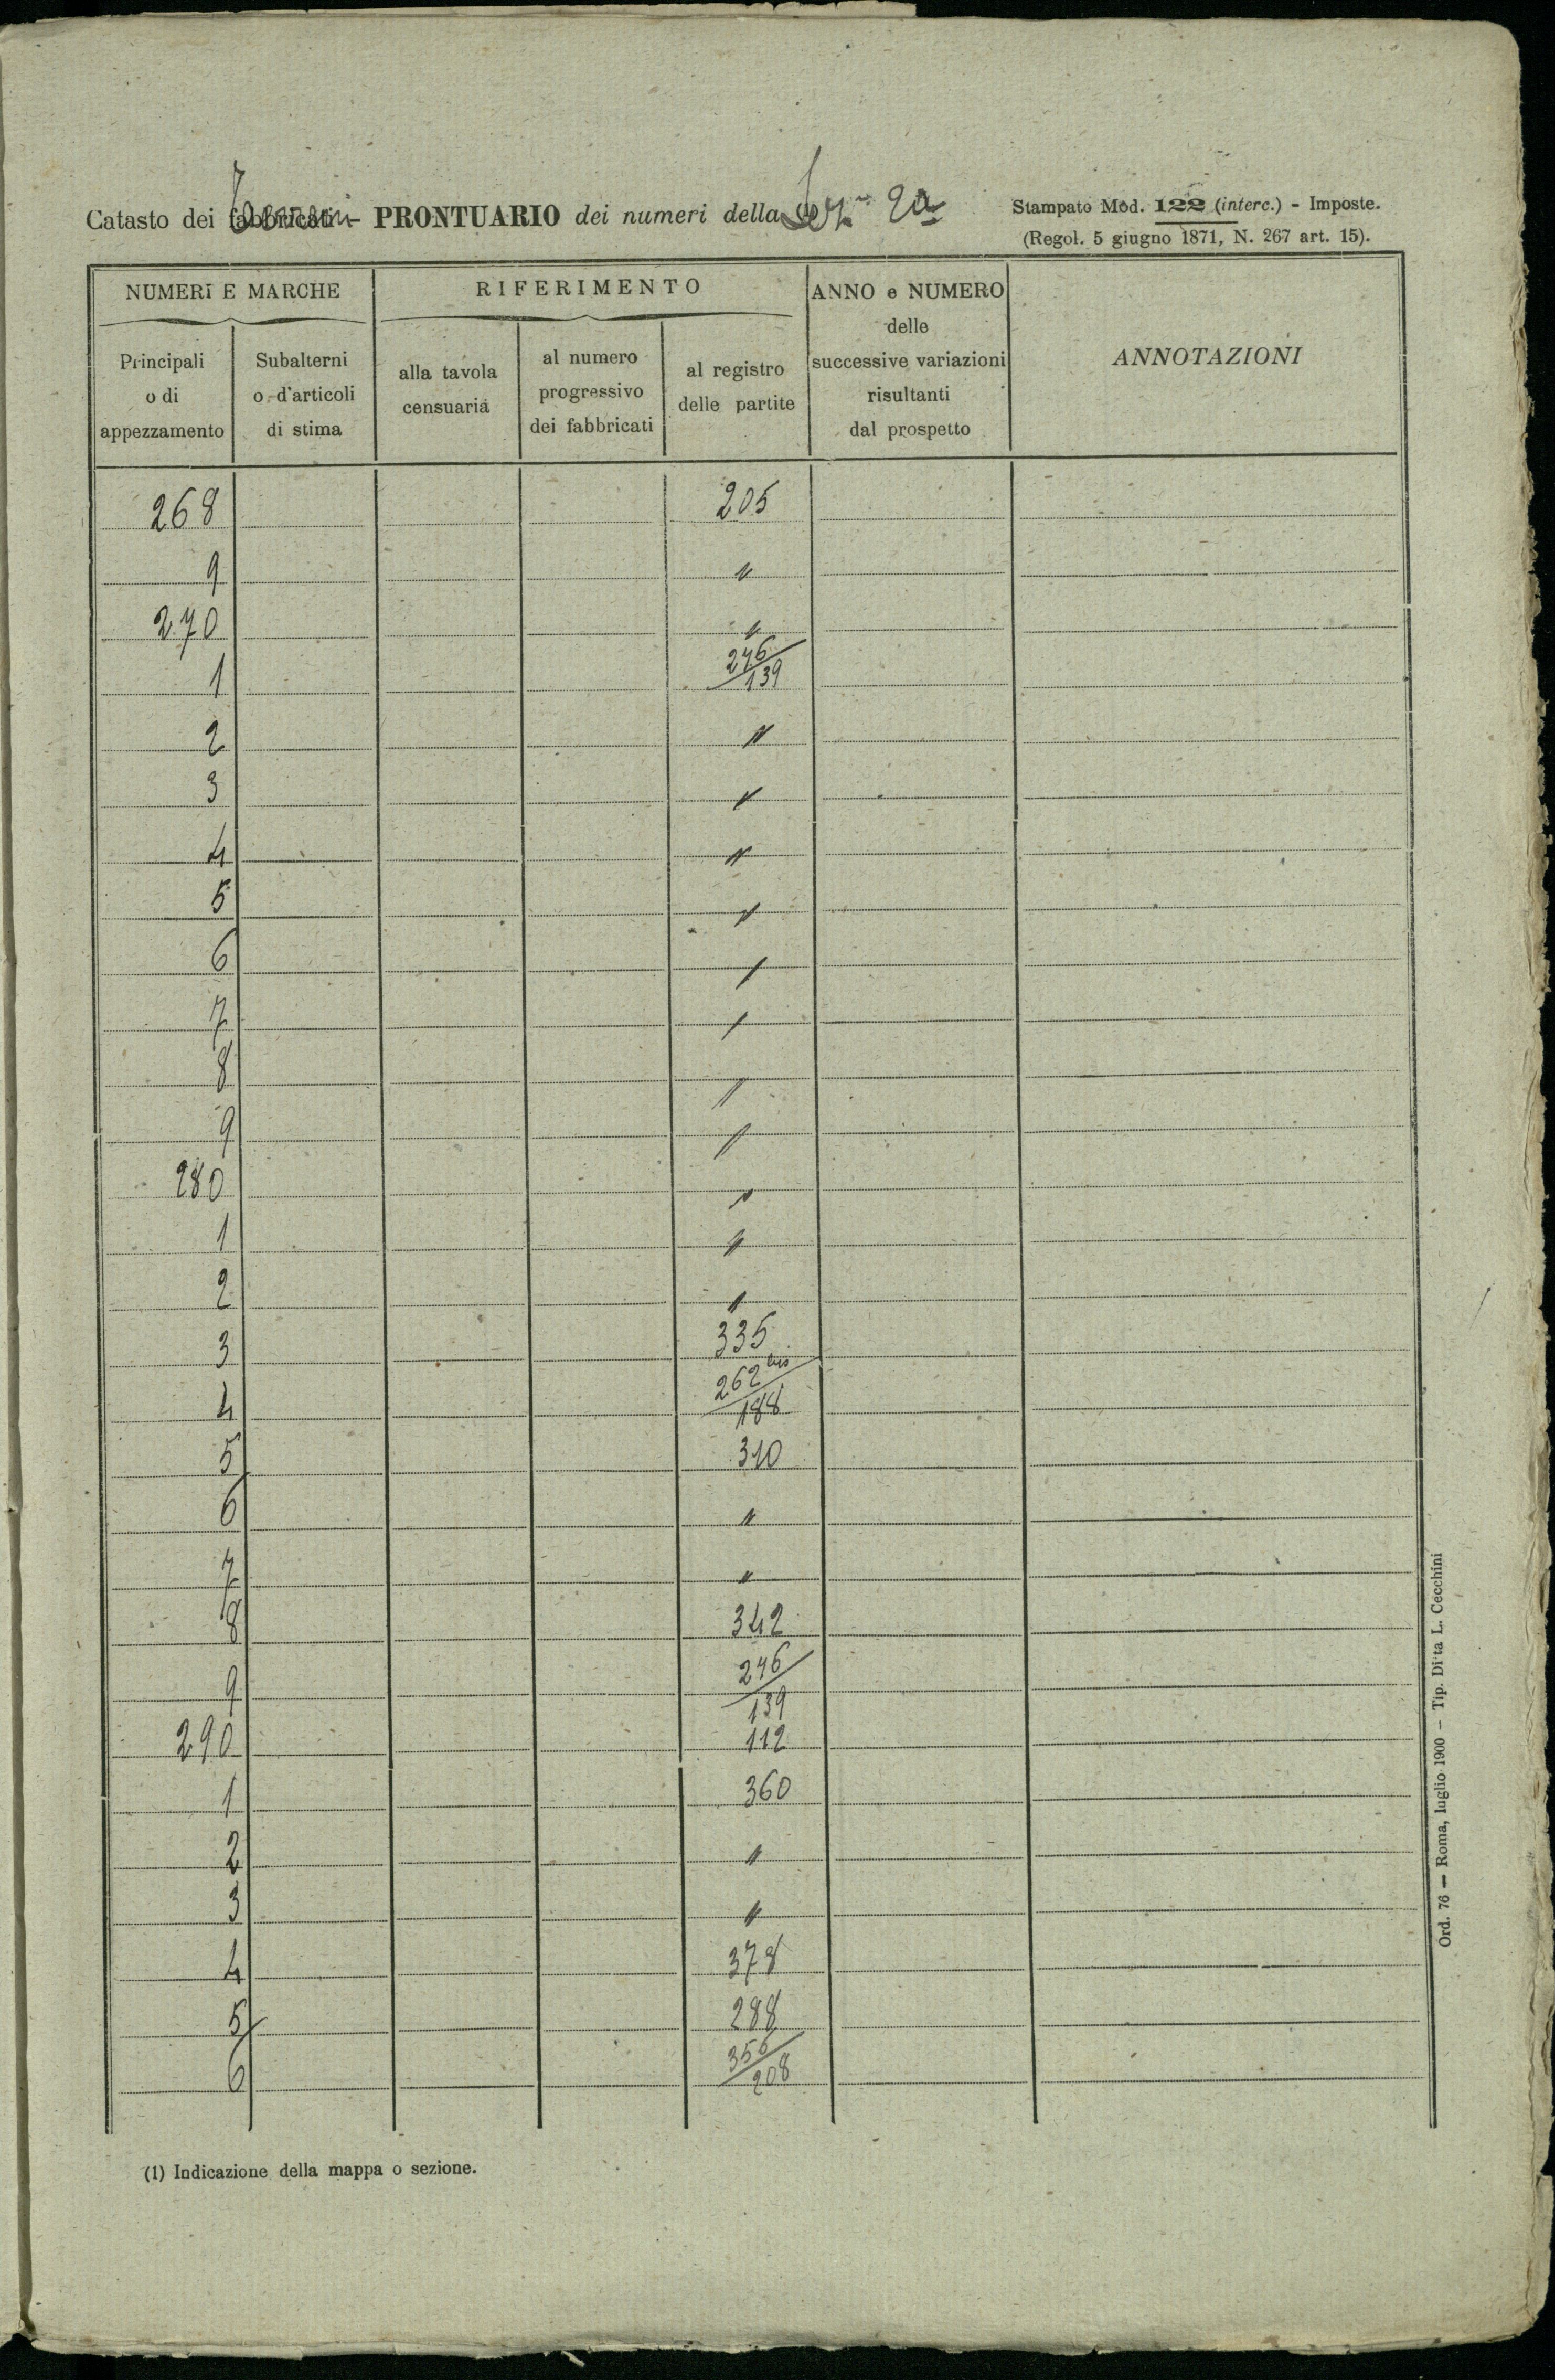 Catasto dei fabbricati Terreni - PRONTUARIO dei numeri della Sez.ne 2a
Stampato Mod. 122 (interc.) - Imposte.
(Regol. 5 giugno 1871, N. 267 art. 15).
NUMERI E MARCHE
RIFERIMENTO
ANNO e NUMERO
delle
successive variazioni
risultanti
dal prospetto
ANNOTAZIONI
Principali
o di
appezzamento
Subalterni
o d'articoli
di stima
alla tavola
censuaria
al numero
progressivo
dei fabbricati
al registro
delle partite
268 205
9 "
270 "
1 246/139
2 "
3 "
4 "
5 "
6 "
7 "
8 "
9 "
280 "
1 "
2 "
3 335
4 262 bis/188
5 310
6 "
7 "
8 342
9 246/139
290 112
1 360
2 "
3 "
4 378
5 288
6 356/208
(1) Indicazione della mappa o sezione.
Ord. 76 - Roma, luglio 1900 - Tip. Ditta L. Cecchini